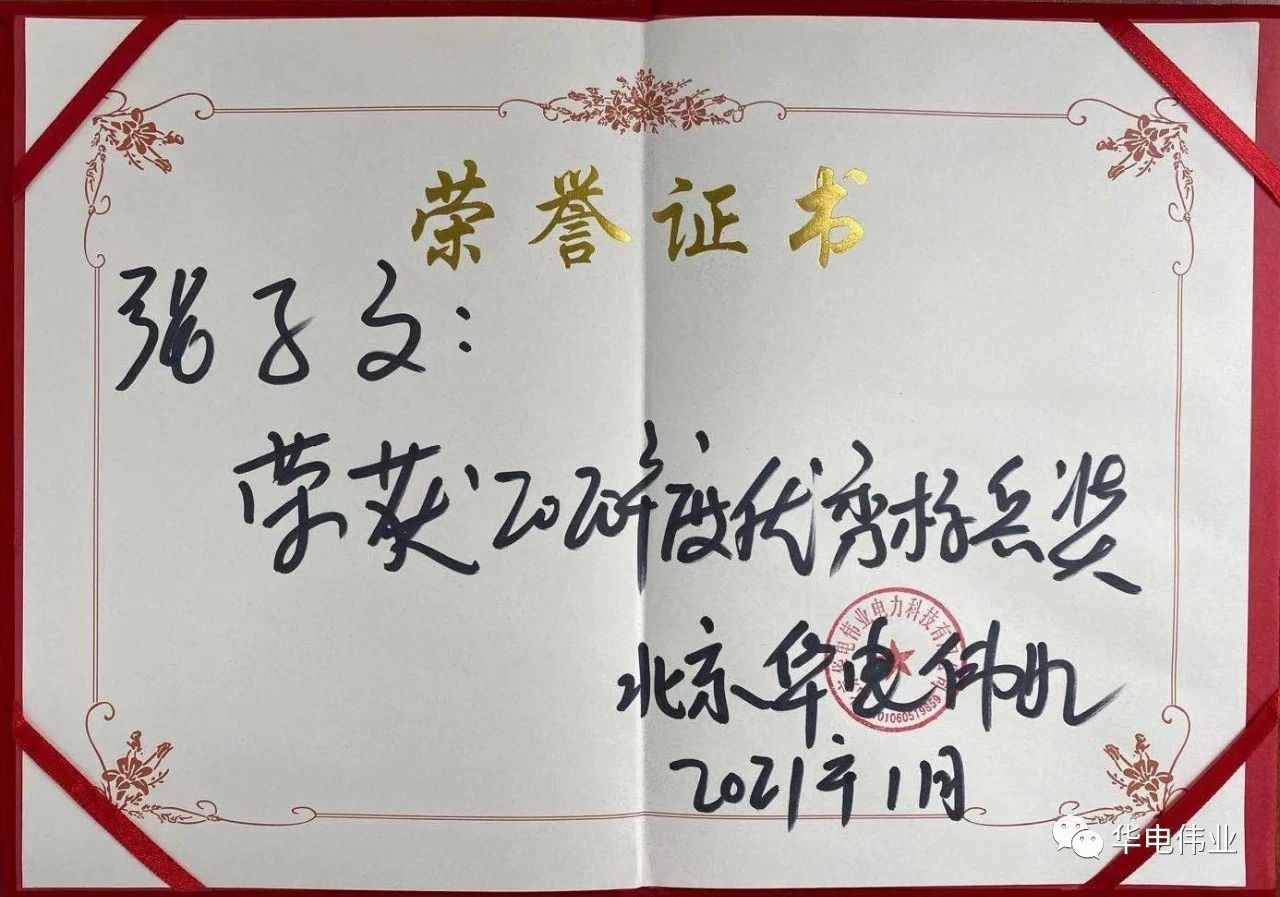 荣誉证书
张子文：
荣获2020年度优秀标兵奖
北京华电伟业
华电伟业电力科技有
2021年1月
华电伟业